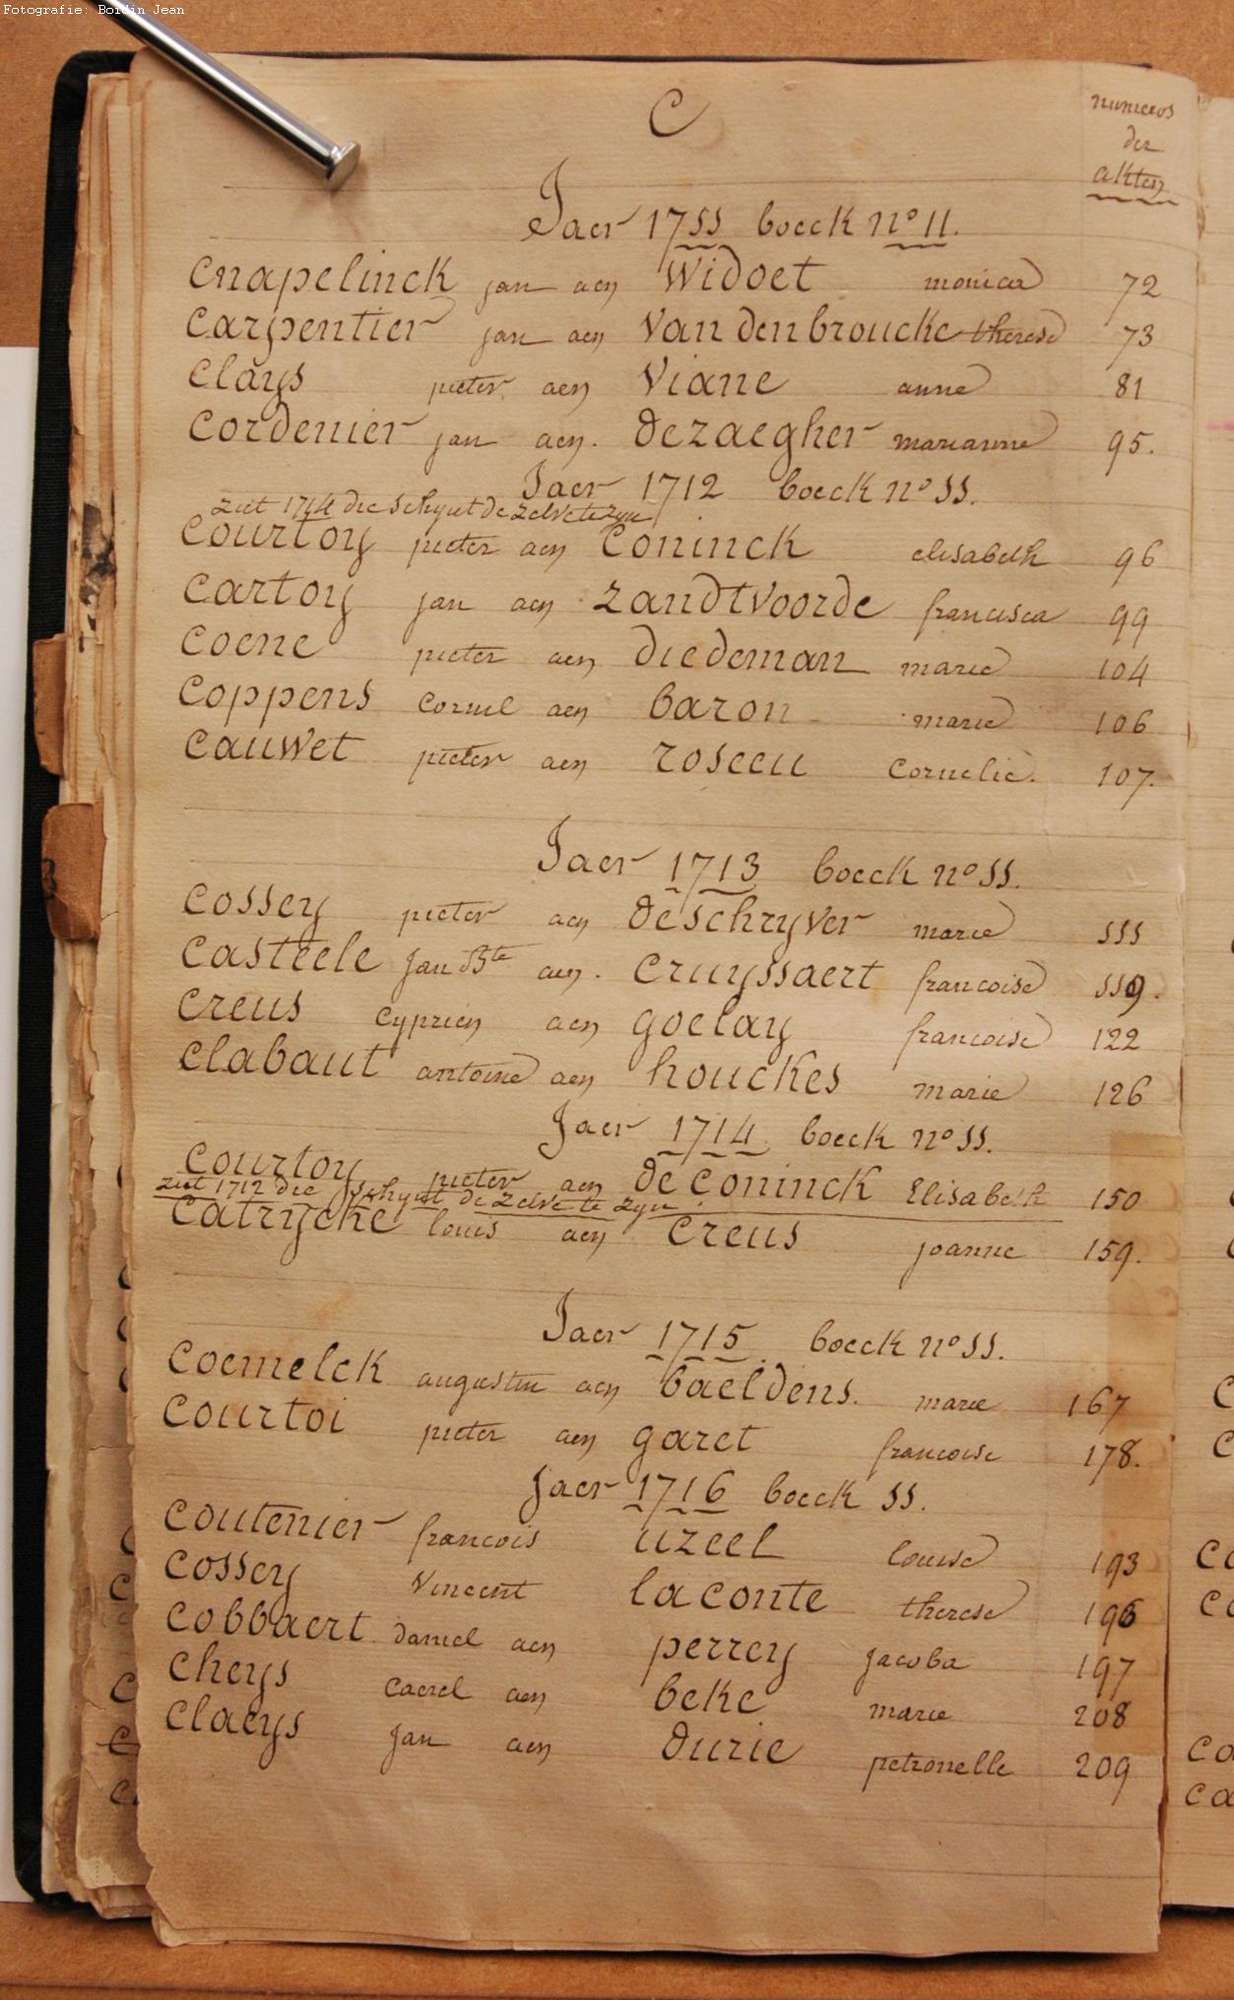 Fotografie: Boidin Jean
C
numeros
der
akten
Jaer 1711 boeck n° 11.
Cnapelinck jan aen Widoet monica 72
Carpentier jan aen Vandenbroucke therese 73
Clays pieter aen Viane anne 81
Cordenier jan aen. dezaegher marianne 95.
Jaer 1712 boeck n° 11.
ziet 1714 die schynt de zelve te zyn
Courtoy pieter aen Coninck elisabeth 96
Cartoy jan aen zandtvoorde francisca 99
Coene pieter aen diedeman marie 104
Coppens Cornel aen baron marie 106
Cauwet pieter aen roseeu Cornelie. 107.
Jaer 1713 boeck n° 11.
Cossey pieter aen deschryver marie 111
Casteele Jan Bte aen. Cruyssaert francoise 119.
Creus Cyprien aen goelay francoise 122
Clabaut antoine aen houckes marie 126
Jaer 1714 boeck n° 11.
Courtoy pieter aen de Coninck Elisabeth 150
ziet 1712 die schynt de zelve te zyn
Catrycke louis aen Creus joanne 159.
Jaer 1715 boeck n° 11.
Coemelck augustin aen baeldens. marie 167
Courtoi pieter aen garet francoise 178.
Jaer 1716 boeck 11.
Coutenier francois uzeel louise 193
Cossey Vincent laconte therese 196
Cobbaert daniel aen perrey Jacoba 197
Cheys Caerel aen beke marie 208
Claeys Jan aen durie petronelle 209